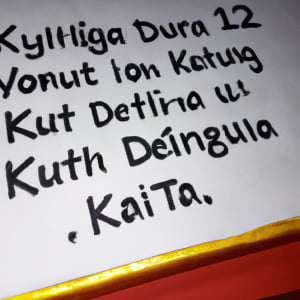 Kyltliga Dura 12
Yonut Ion Katung
Kut Detlina ui
Kuth Deíngula
. KaiTa.